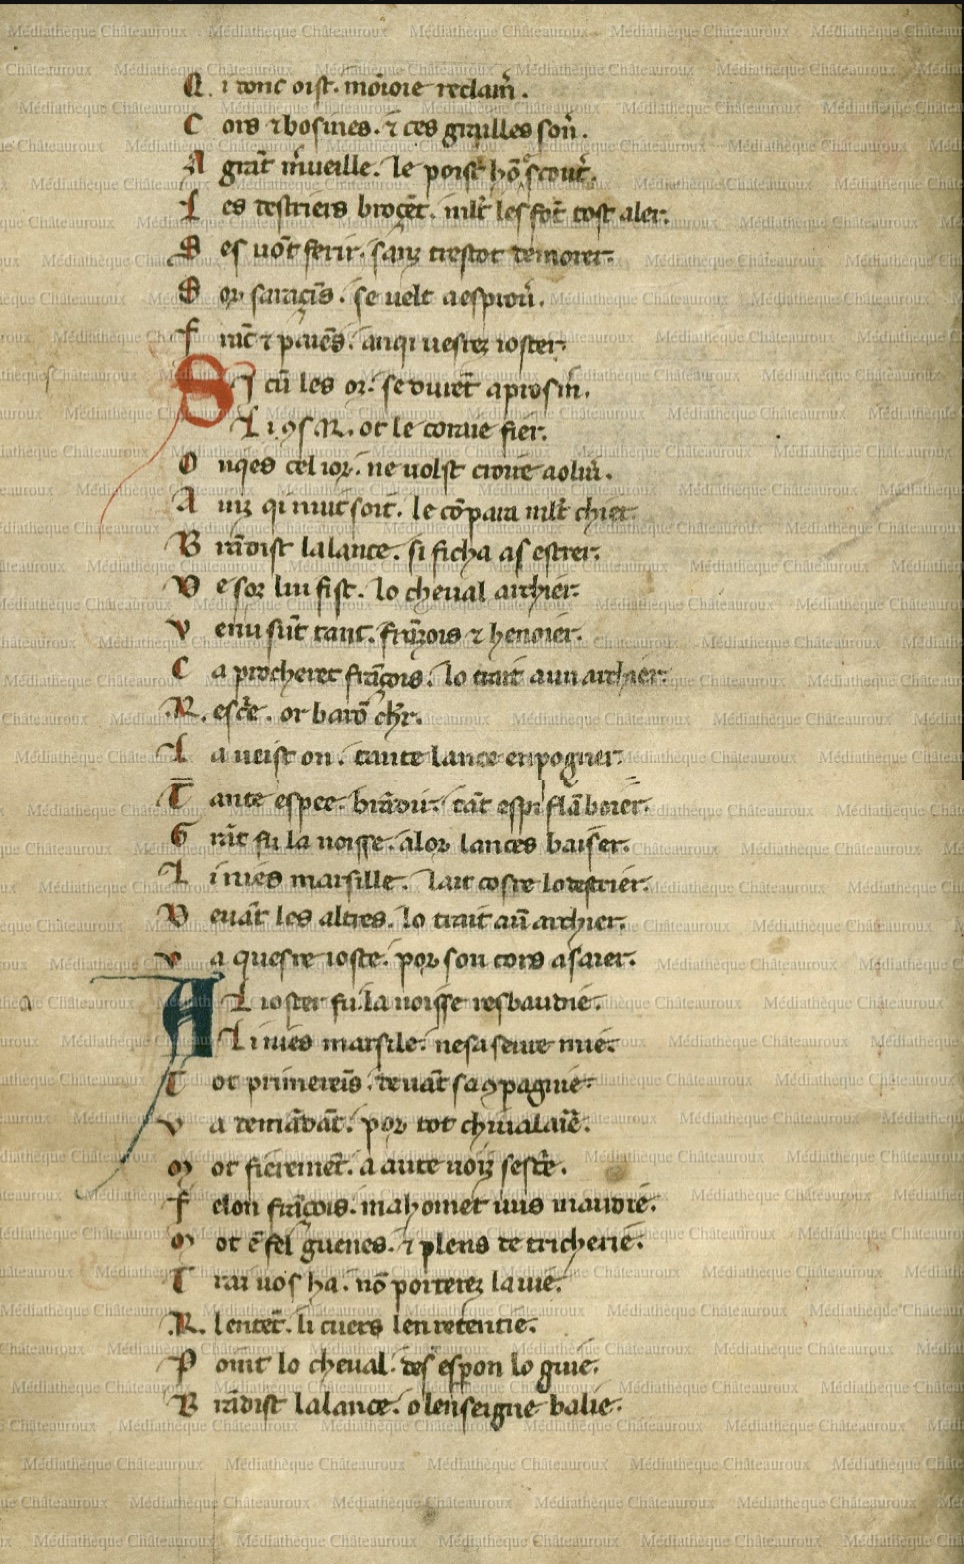 Q i donc oist. moioie reclam̃.
C ors ⁊ bosines. ⁊ ces grailles son̄.
A grãt m̃ueille. le poist hõ scout̃.
L es destriers brocẽt. mlt̃ les fõt tost aler.
S es uõt ferir. sanz trestot demorer.
S or saracĩs. se uelt aesprou̾.
F rãc ⁊ paiẽs. anqi uestrez ioster.
S I cũ les oz. se duiẽt aprosm̃.
L i ꝯs .R. ot le coraie fier.
O nqes cel ior. ne uolst croire aoliũ.
A inz qi nuit soit. le cõpara mlt̃ chier.
B rãdist la lance. si ficha as estrer.
D esor lui fist. lo cheual archier.
V enu sũt tant. frãzois ⁊ henoier.
C a procherẽt frãçois. lo trait aun archier.
.R. escrie. or barõ chr̃.
L a ueist on. tante lance enpogner.
T ante espee. brãdir. tãt espi flãboier.
G rãt fu la noisse. alor lances baiser.
L i nies marsille. lait costre lo destrier.
D euãt les altres. lo trait aũ archier.
V a querre ioste. por son cors asaier.
A L ioster fu. la noisse resbaudie.
L i nies marsile. ne sa seure mie.
T ot primereĩs. deuãt sa ꝯpagnie.
V a demãdãt. por tot chiualarie.
M ot fieremẽt. a aute uoiz sescrie.
F elon frãçois. mahomet uus maudie.
M ot ẽ fel guenes. ⁊ plens de tricherie.
T rai uos ha. nõ porterez la uie.
.R. lentẽt. li cuers len retentie.
P oint lo cheual. des espon lo guie.
B rãdist la lance. o lenseigne balie.